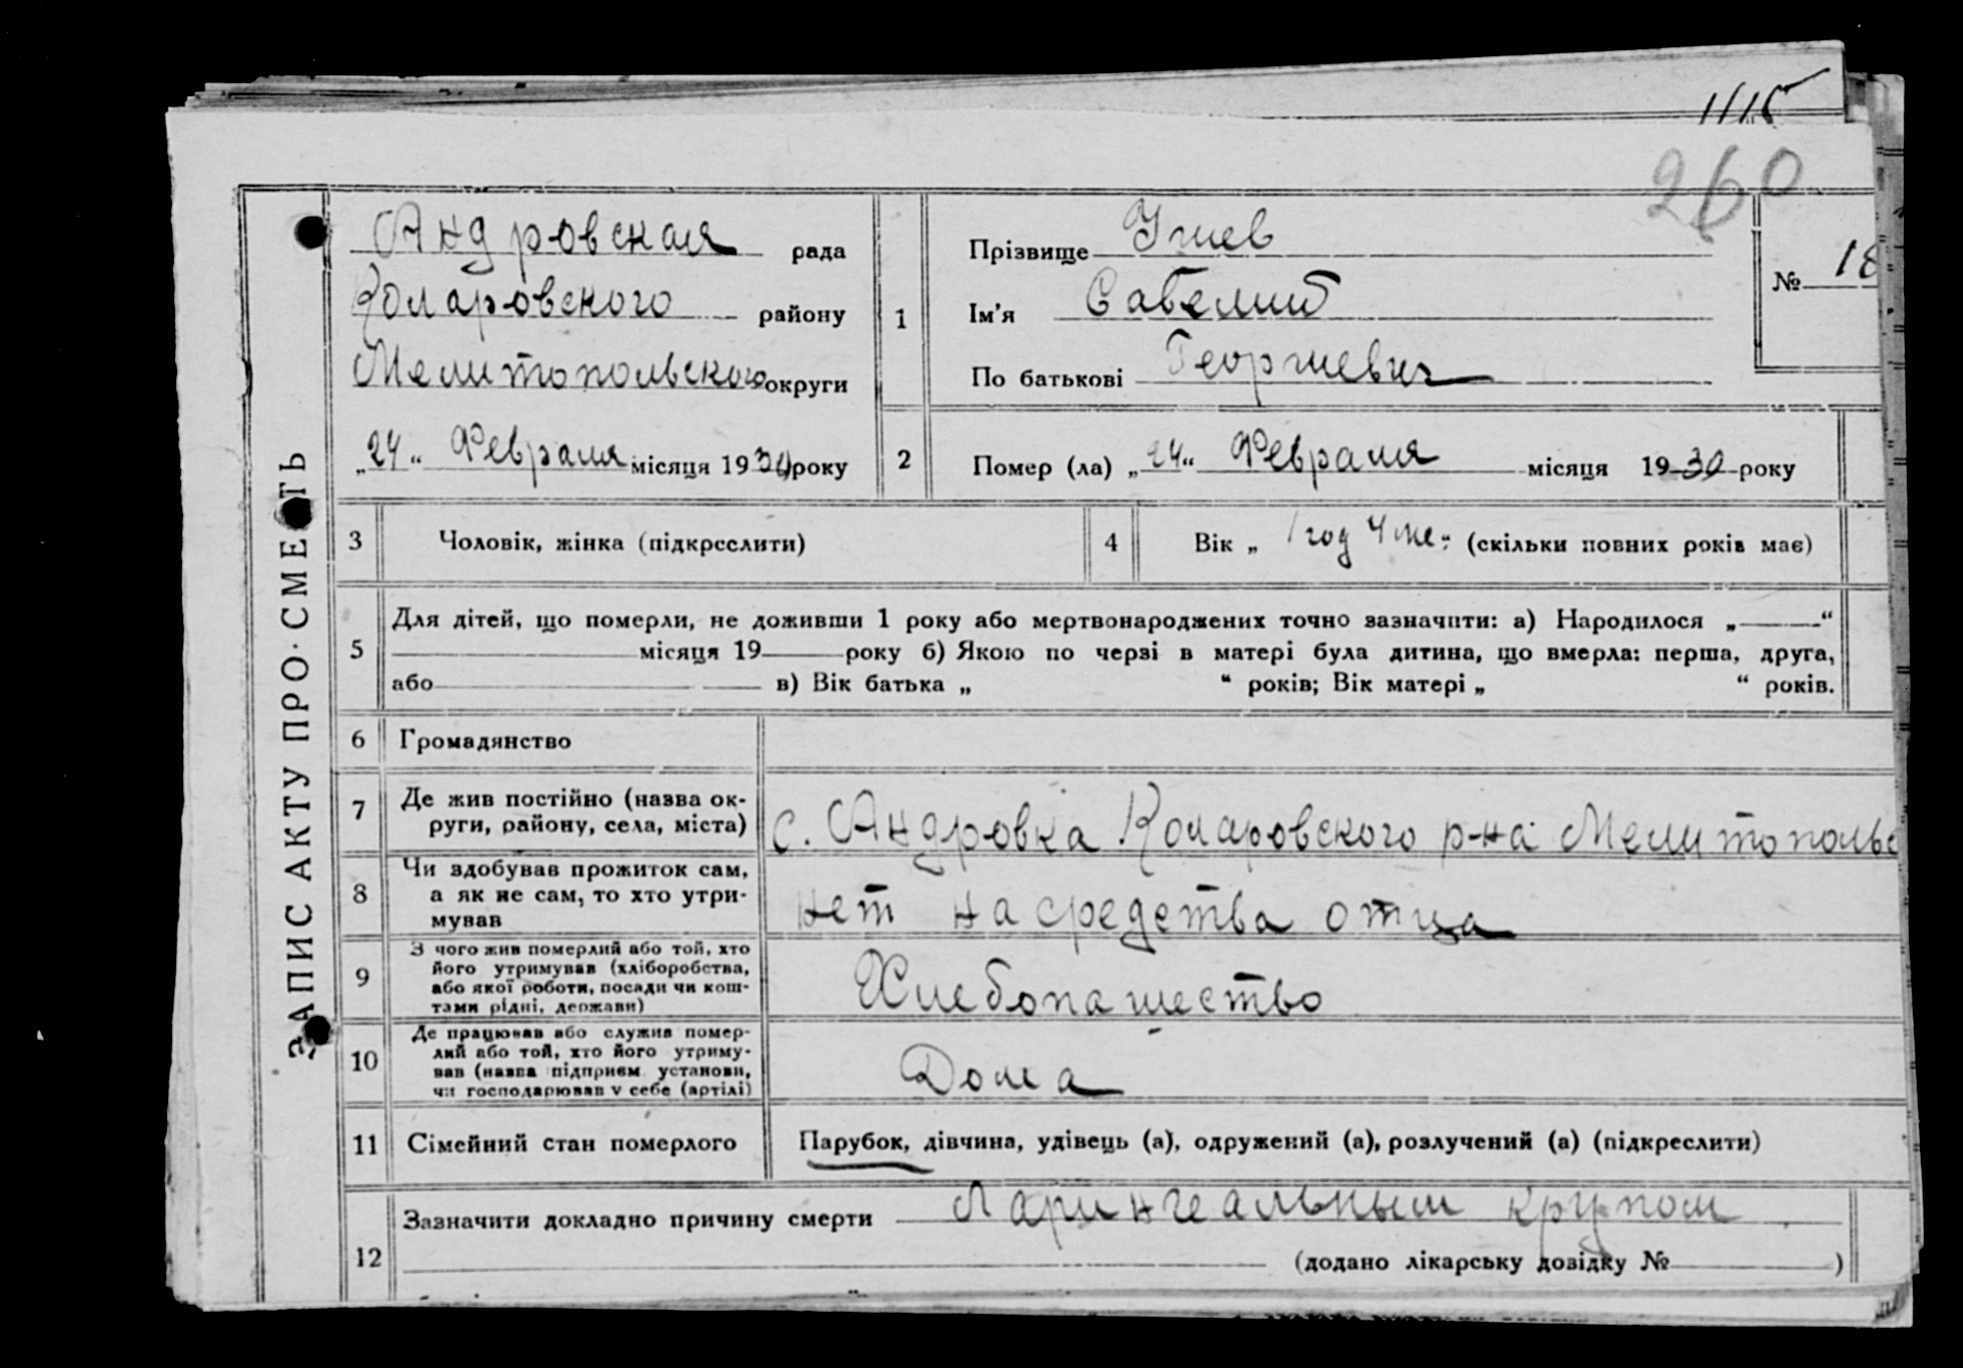 1115
260
ЗАПИС АКТУ ПРО СМЕ ТЬ
Андровская рада
Коларовского району
Мелитопольского округи
„24“ Февраля місяця 1930 року
1
Прізвище
Ім'я Савелий
По батькові Георгиевич
№ 18
2
Помер (ла) „24“ Февраля місяця 1930 року
3
Чоловік, жінка (підкреслити)
4
Вік „ 1 год 4 ме. “ (скільки повних років має)
5
Для дітей, що померли, не доживши 1 року або мертвонароджених точно зазначити: а) Народилося „ “
місяця 19 року б) Якою по черзі в матері була дитина, що вмерла: перша, друга,
або в) Вік батька „ “ років; Вік матері „ “ років.
6
Громадянство
7
Де жив постійно (назва ок-
руги, району, села, міста)
с. Андровка Коларовского р-на Мелитопольс
8
Чи здобував прожиток сам,
а як не сам, то хто утри-
мував
нет на средства отца
9
З чого жив померлий або той, хто
його утримував (хліборобства,
або якої роботи, посади чи кош-
тами рідні, держави)
Хлебопашество
10
Де працював або служив помер-
лий або той, хто його утриму-
вав (назва підприєм. установи,
чи господарював у себе (артілі)
Дома
11
Сімейний стан померлого
Парубок, дівчина, удівець (а), одружений (а), розлучений (а) (підкреслити)
12
Зазначити докладно причину смерти Ларингеальным крупом
(додано лікарську довідку № )